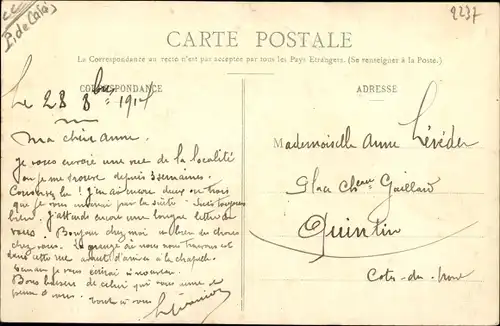 P. de Calais
2237
CARTE POSTALE
La Correspondance au recto n'est pas acceptée par tous les Pays Etrangers. (Se renseigner à la Poste.)
CORRESPONDANCE
ADRESSE
Le 28 8bre 1914
Ma chère Anne.
Je vous envoie une vue de la localité
où je me trouve depuis 3 semaines.
Conservez la ! J'en ai encore deux ou trois
que je vous enverrai par la suite. Suis toujours
bien. J'attends encore une longue lettre de
vous. Bonjour chez moi et bien des choses
chez vous. La grange où nous nous trouvons est
dans cette rue avant d'arriver à la chapelle.
Demain je vous écrirai à nouveau.
Bons baisers de celui qui vous aime de
tout à vous
Mademoiselle Anne Lévéder
Place Gaillard
Quintin
Côtes-du-Nord